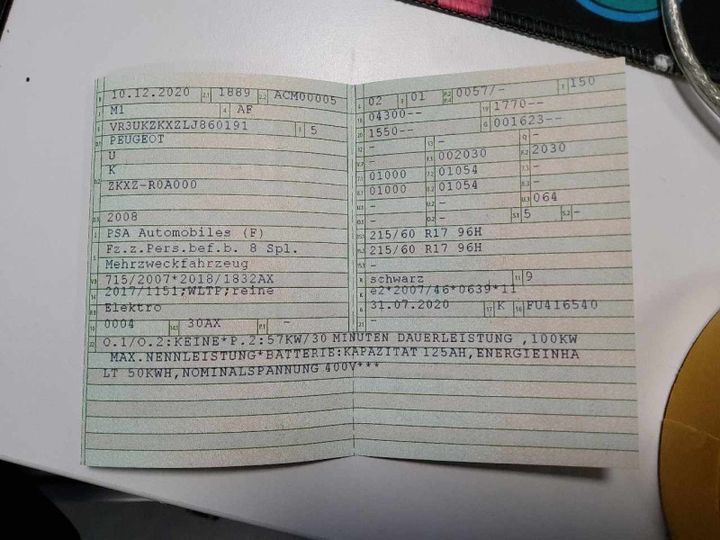 10.12.2020 1889 ACM00005
M1 AF
VR3UKZKXZLJ860191 5
PEUGEOT
U
K
ZKXZ-R0A000
2008
PSA Automobiles (F)
Fz.z.Pers.bef.b. 8 Spl.
Mehrzweckfahrzeug
715/2007*2018/1832AX
2017/1151;WLTP;reine
Elektro
0004 30AX -
02 01 0057/- 150
04300-- 1770--
1550-- 001623--
- - -
- 002030 2030
01000 01054 -
01000 01054 -
- - 064
- - 5 -
215/60 R17 96H
215/60 R17 96H
-
schwarz 9
e2*2007/46*0639*11
31.07.2020 K FU416540
-
O.1/O.2:KEINE*P.2:57KW/30 MINUTEN DAUERLEISTUNG ,100KW
MAX.NENNLEISTUNG*BATTERIE:KAPAZITAT 125AH,ENERGIEINHA
LT 50KWH,NOMINALSPANNUNG 400V***